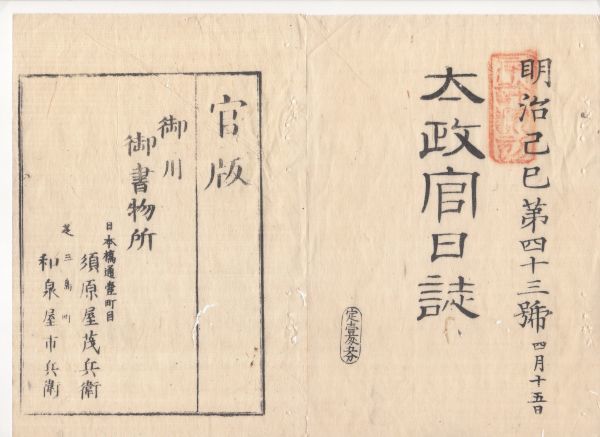 明治己巳第四十三號 四月十五日
太政官日誌
定壹匁
官版
御用
御書物所
日本橋通壹町目
須原屋茂兵衛
芝三島町
和泉屋市兵衛